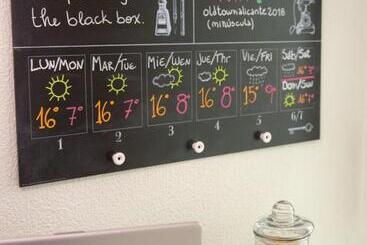 the black box.
oldtownalicante 2018
(minúscula)
LUN/MON MAR/TUE MIE/WEN JUE/THR VIE/FRI SAB/SAT
16° 7° 16° 7° 16° 8° 16° 8° 15° 9°
DOM/SUN
1 2 3 4 5 6/7